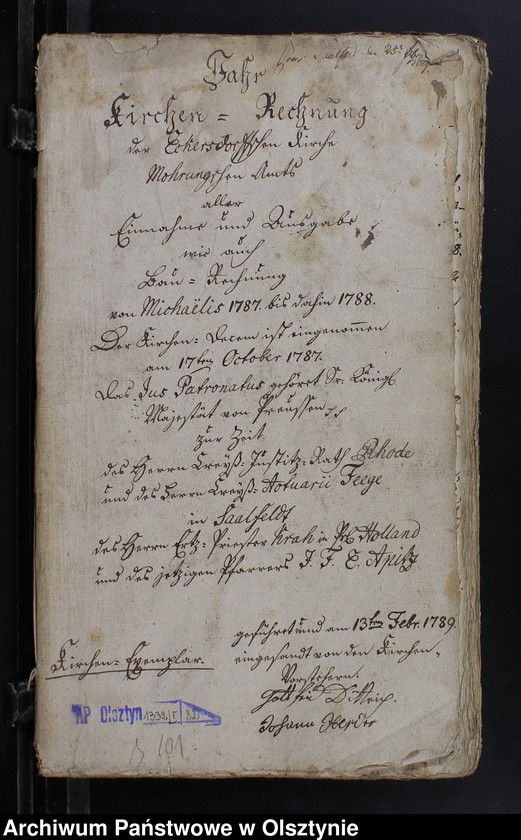 Jahr
Kirchen = Rechnung
der Eckersdorffschen Kirche
Mohrungschen Amts
aller
Einnahme und Ausgabe
wie auch
Bau = Rechnung
von Michaëlis 1787. bis dahin 1788.
Der Kirchen = Decem ist eingenommen
am 17ten October 1787.
Das Jus Patronatus gehöret Sr. Königl
Majestät von Preussen
zur Zeit
des Herrn Creyß = Justitz = Rath Rhode
und des Herrn Creyß = Actuarii Feege
in Saalfeldt
des Herrn Ertz = Priester Krah in Pr. Holland
und des jetzigen Pfarrers J. F. E. Apitz
geführet und am 13ten Febr. 1789.
eingesandt von den Kirchen =
Vorstehern.
Gottfried
Johann
Kirchen = Exemplar.
AP Olsztyn 1338/I
101
Archiwum Państwowe w Olsztynie